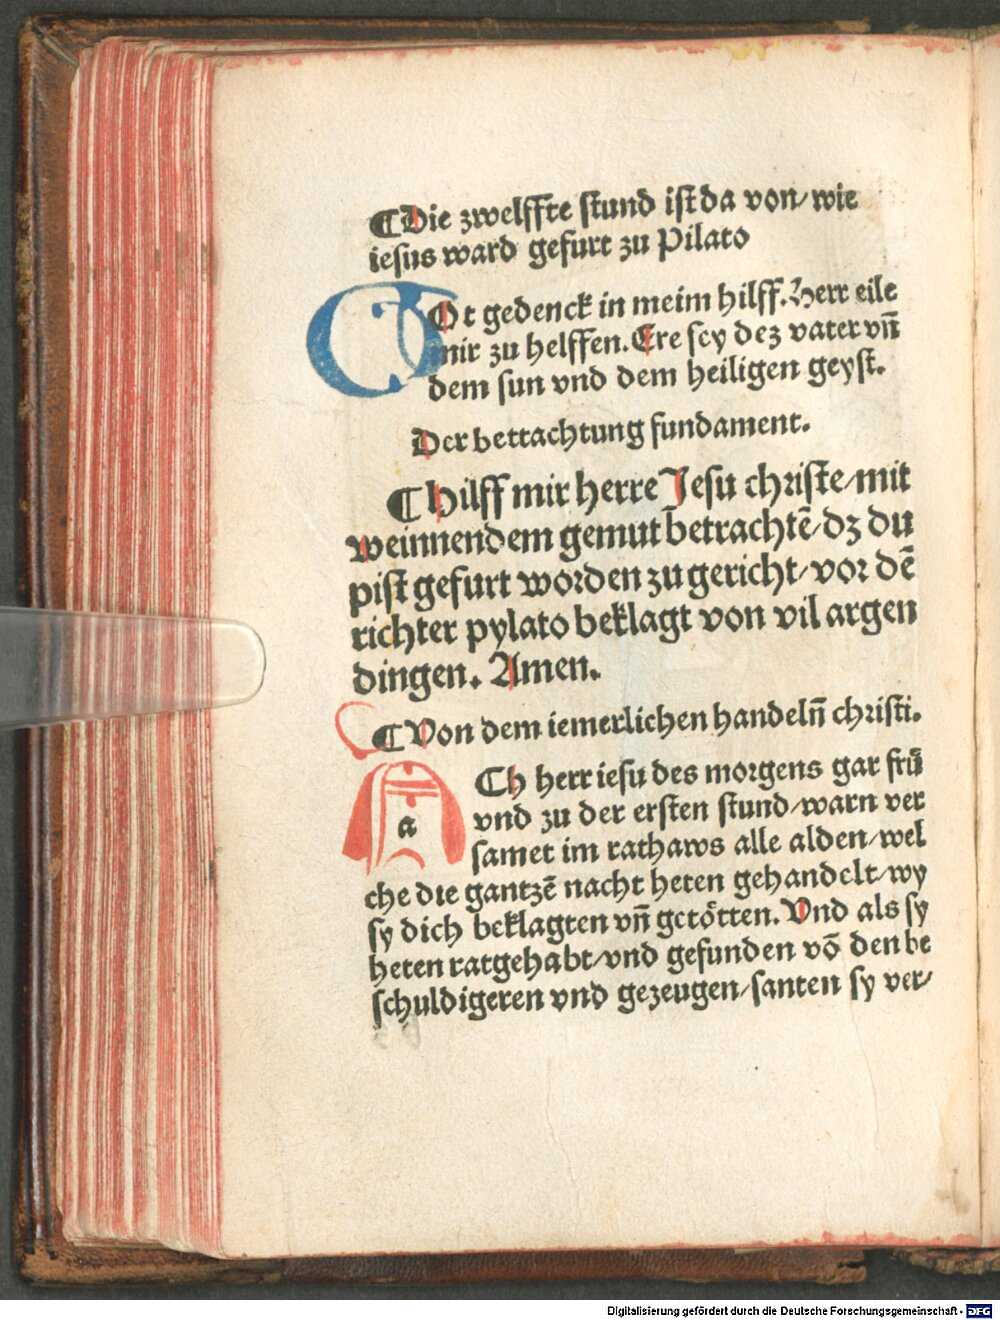 ¶Die zwelffte stund ist da von/ wie
iesus ward gefurt zu Pilato
GOt gedenck in meim hilff. Herr eile
mir zu helffen. Ere sey dez vater vn̄
dem sun vnd dem heiligen geyst.
Der betrachtung fundament.
¶hilff mir herre Jesu christe/ mit
weinnendem gemut betrachtē/ dz du
pist gefurt worden zu gericht/ vor dē
richter pylato beklagt von vil argen
dingen. Amen.
¶Von dem iemerlichen handeln̄ christi.
ACh herr iesu des morgens gar frü
vnd zu der ersten stund/ warn ver
samet im rathaws alle alden/ wel
che die gantzē nacht heten gehandelt/ wy
sy dich beklagten vn̄ getötten. Vnd als sy
heten ratgehabt/ vnd gefunden vō den be
schuldigeren vnd gezeugen/ santen sy ver/
Digitalisierung gefördert durch die Deutsche Forschungsgemeinschaft - DFG